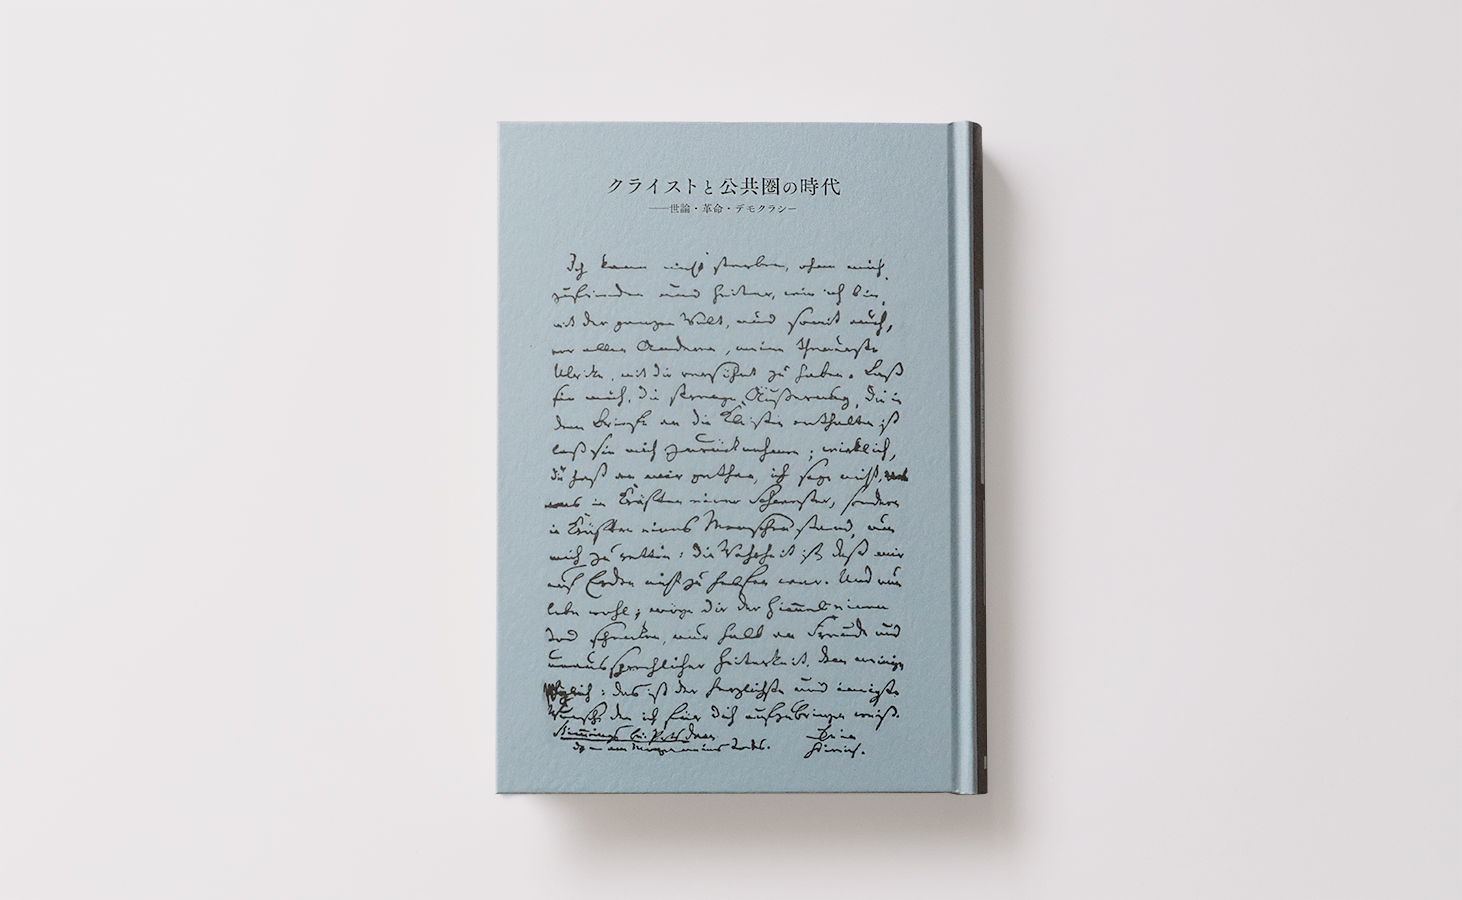 クライストと公共圏の時代
――世論・革命・デモクラシー
Ich kann nicht sterben, ohne mich,
zufrieden und heiter, wie ich bin,
mit der ganzen Welt, und somit auch,
vor allen Anderen, meine theuerste
Ulrike, mit dir versöhnt zu haben. Laß
sie mich, die strenge Äußerung, die in
dem Briefe an die Kleisten enthalten ist
laß sie mich zurücknehmen; wirklich,
du hast an mir gethan, ich sage nicht,
was in Kräften einer Schwester, sondern
in Kräften eines Menschen stand, um
mich zu retten: die Wahrheit ist, daß mir
auf Erden nicht zu helfen war. Und nun
lebe wohl; möge dir der Himmel einen
Tod schenken, nur halb an Freude und
unaussprechlicher Heiterkeit, dem meinigen
gleich: das ist der herzlichste und innigste
Wunsch, den ich für dich aufzubringen weiß.
Stimmings bei Potsdam Dein
d. – am Morgen meines Todes. Heinrich.